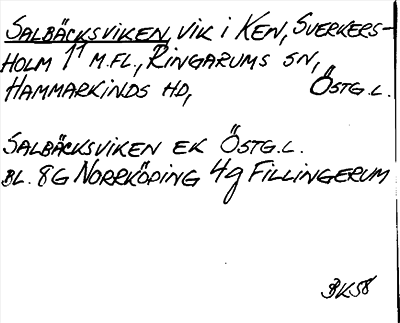 SALBÄCKSVIKEN, VIK I KEN, SVERKERS-
HOLM 1¹ M.FL., RINGARUMS SN,
HAMMARKINDS HD, ÖSTG.L.
SALBÄCKSVIKEN EK ÖSTG.L.
BL. 8G NORRKÖPING 4g FILLINGERUM
BK58